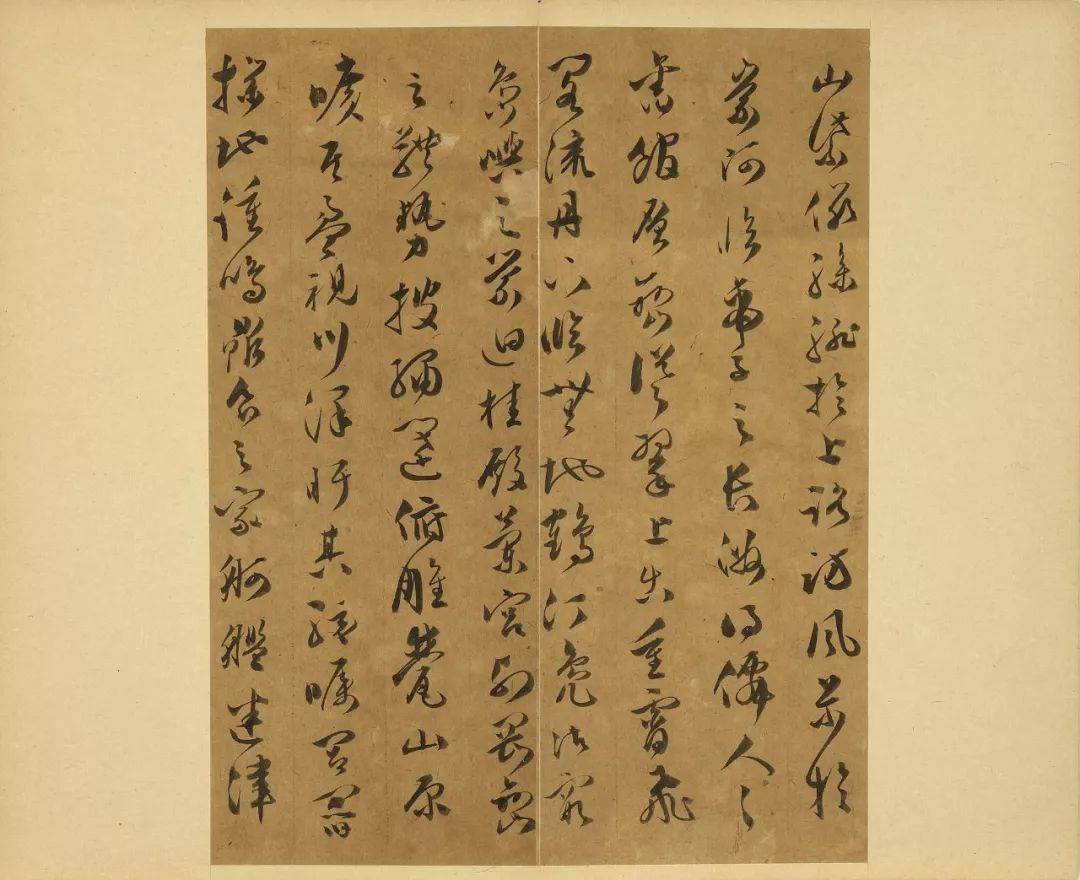 山紫儼驂騑於上路訪風景於
崇阿臨帝子之長洲得僊人之
舊館層巒聳翠上出重霄飛
閣流丹下臨無地鶴汀鳧渚窮
島嶼之縈迴桂殿蘭宮列岡巒
之體勢披繡闥俯雕甍山原
曠其盈視川澤盱其駭矚閭閻
撲地鍾鳴鼎食之家舸艦迷津